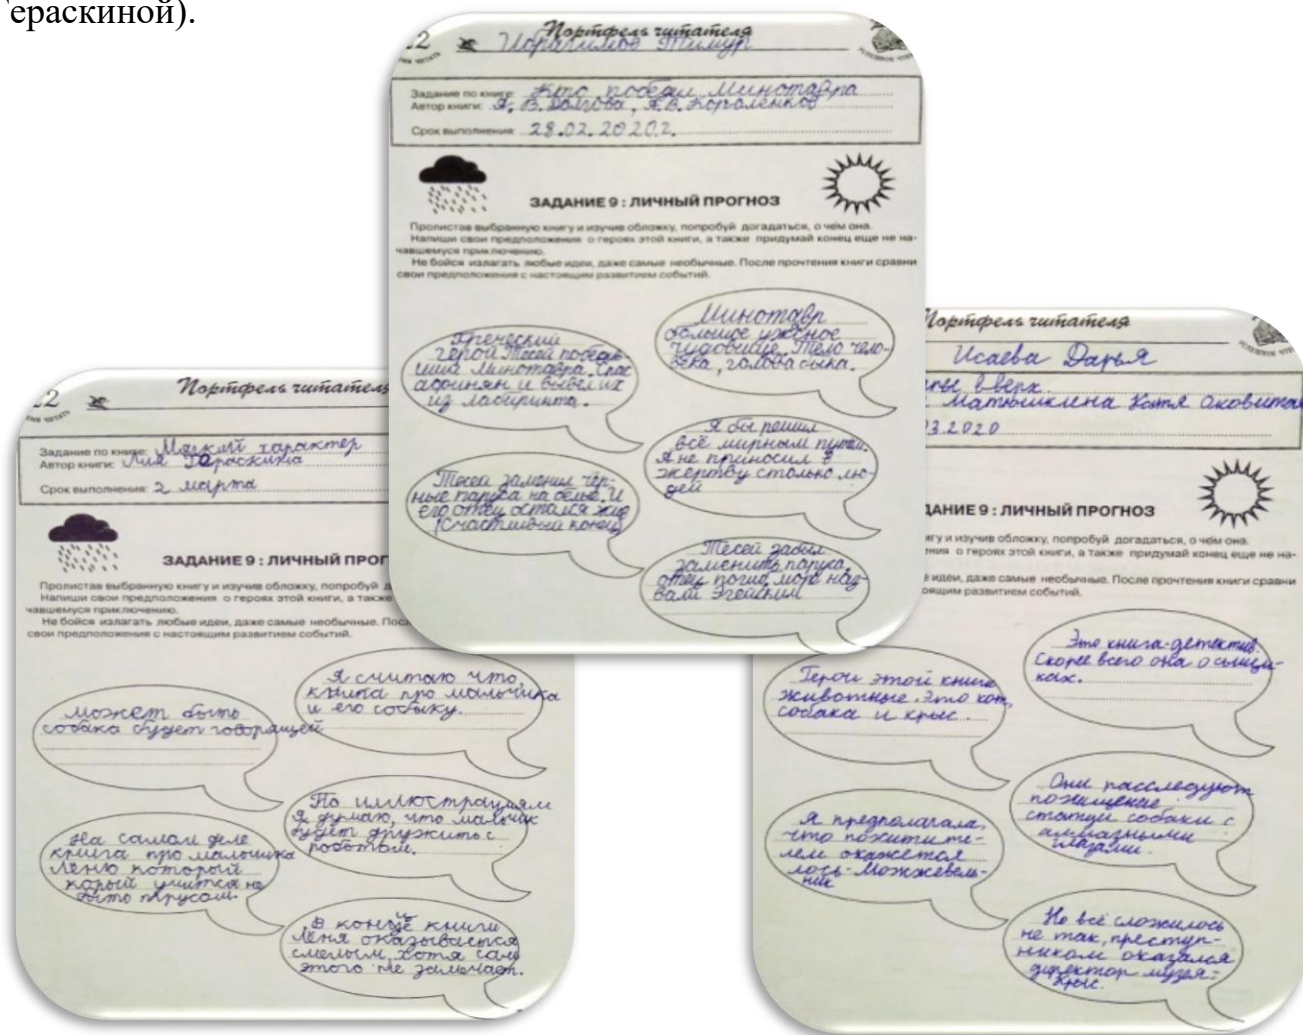 ераскиной).
22
Портфель читателя
Ибрагимов Тимур
Задание по книге: Кто победил Минотавра
Автор книги: А. В. Долгова, А.В. Короленков
Срок выполнения: 28.02.2020г.
ЗАДАНИЕ 9 : ЛИЧНЫЙ ПРОГНОЗ
Пролистав выбранную книгу и изучив обложку, попробуй догадаться, о чём она.
Напиши свои предположения о героях этой книги, а также придумай конец еще не на-
чавшемуся приключению.
Не бойся излагать любые идеи, даже самые необычные. После прочтения книги сравни
свои предположения с настоящим развитием событий.
Минотавр
большое ужасное
чудовище. Тело чело-
века, голова быка.
Греческий
герой Тесей победи-
минотавра. Спас
афинян и вывел их
из лабиринта.
Я бы решил
всё мирным путем.
Я не приносил в
жертву столько лю-
дей
Тесей заменил чёр-
ные паруса на белые. И
его отец остался жив
(Счастливый конец)
Тесей забыл
заменить паруса,
отец погиб, море наз-
вали Эгейским
22
Портфель читателя
Задание по книге: Мягкий характер
Автор книги: Лия Гераскина
Срок выполнения: 2 марта
ЗАДАНИЕ 9 : ЛИЧНЫЙ ПРОГ
Пролистав выбранную книгу и изучив обложку, попробуй д
Напиши свои предположения о героях этой книги, а также
чавшемуся приключению.
Не бойся излагать любые идеи, даже самые необычные. Посл
свои предположения с настоящим развитием событий.
Я считаю что,
книга про мальчика
и его собаку.
может быть
собака будет говорящей
По иллюстрациям
Я думаю, что мальчик
будет дружить с
роботом.
На самом деле
книга про мальчика
Лёню который
корый учится не
быть трусом.
В конце книги
Лёня оказывается
смелым, хотя сам
этого не замечает.
Портфель читателя
Исаева Дарья
пы вверх.
Матюшкина Катя Оковитая
03.2020
ДАНИЕ 9 : ЛИЧНЫЙ ПРОГНОЗ
игу и изучив обложку, попробуй догадаться, о чём она.
ения о героях этой книги, а также придумай конец еще не на-
е идеи, даже самые необычные. После прочтения книги сравни
оящим развитием событий.
Это книга-детектив.
Скорее всего она о сыщи-
ках.
Герои этой книги
животные. Это кот,
собака и крыс.
Они расследуют
похищение
статуи собаки с
алмазными
глазами.
Я предполагала,
что похитите-
лем окажется
лось-Можжевель-
ник
Но всё сложилось
не так, преступ-
ником оказался
директор музея-
Крыс.